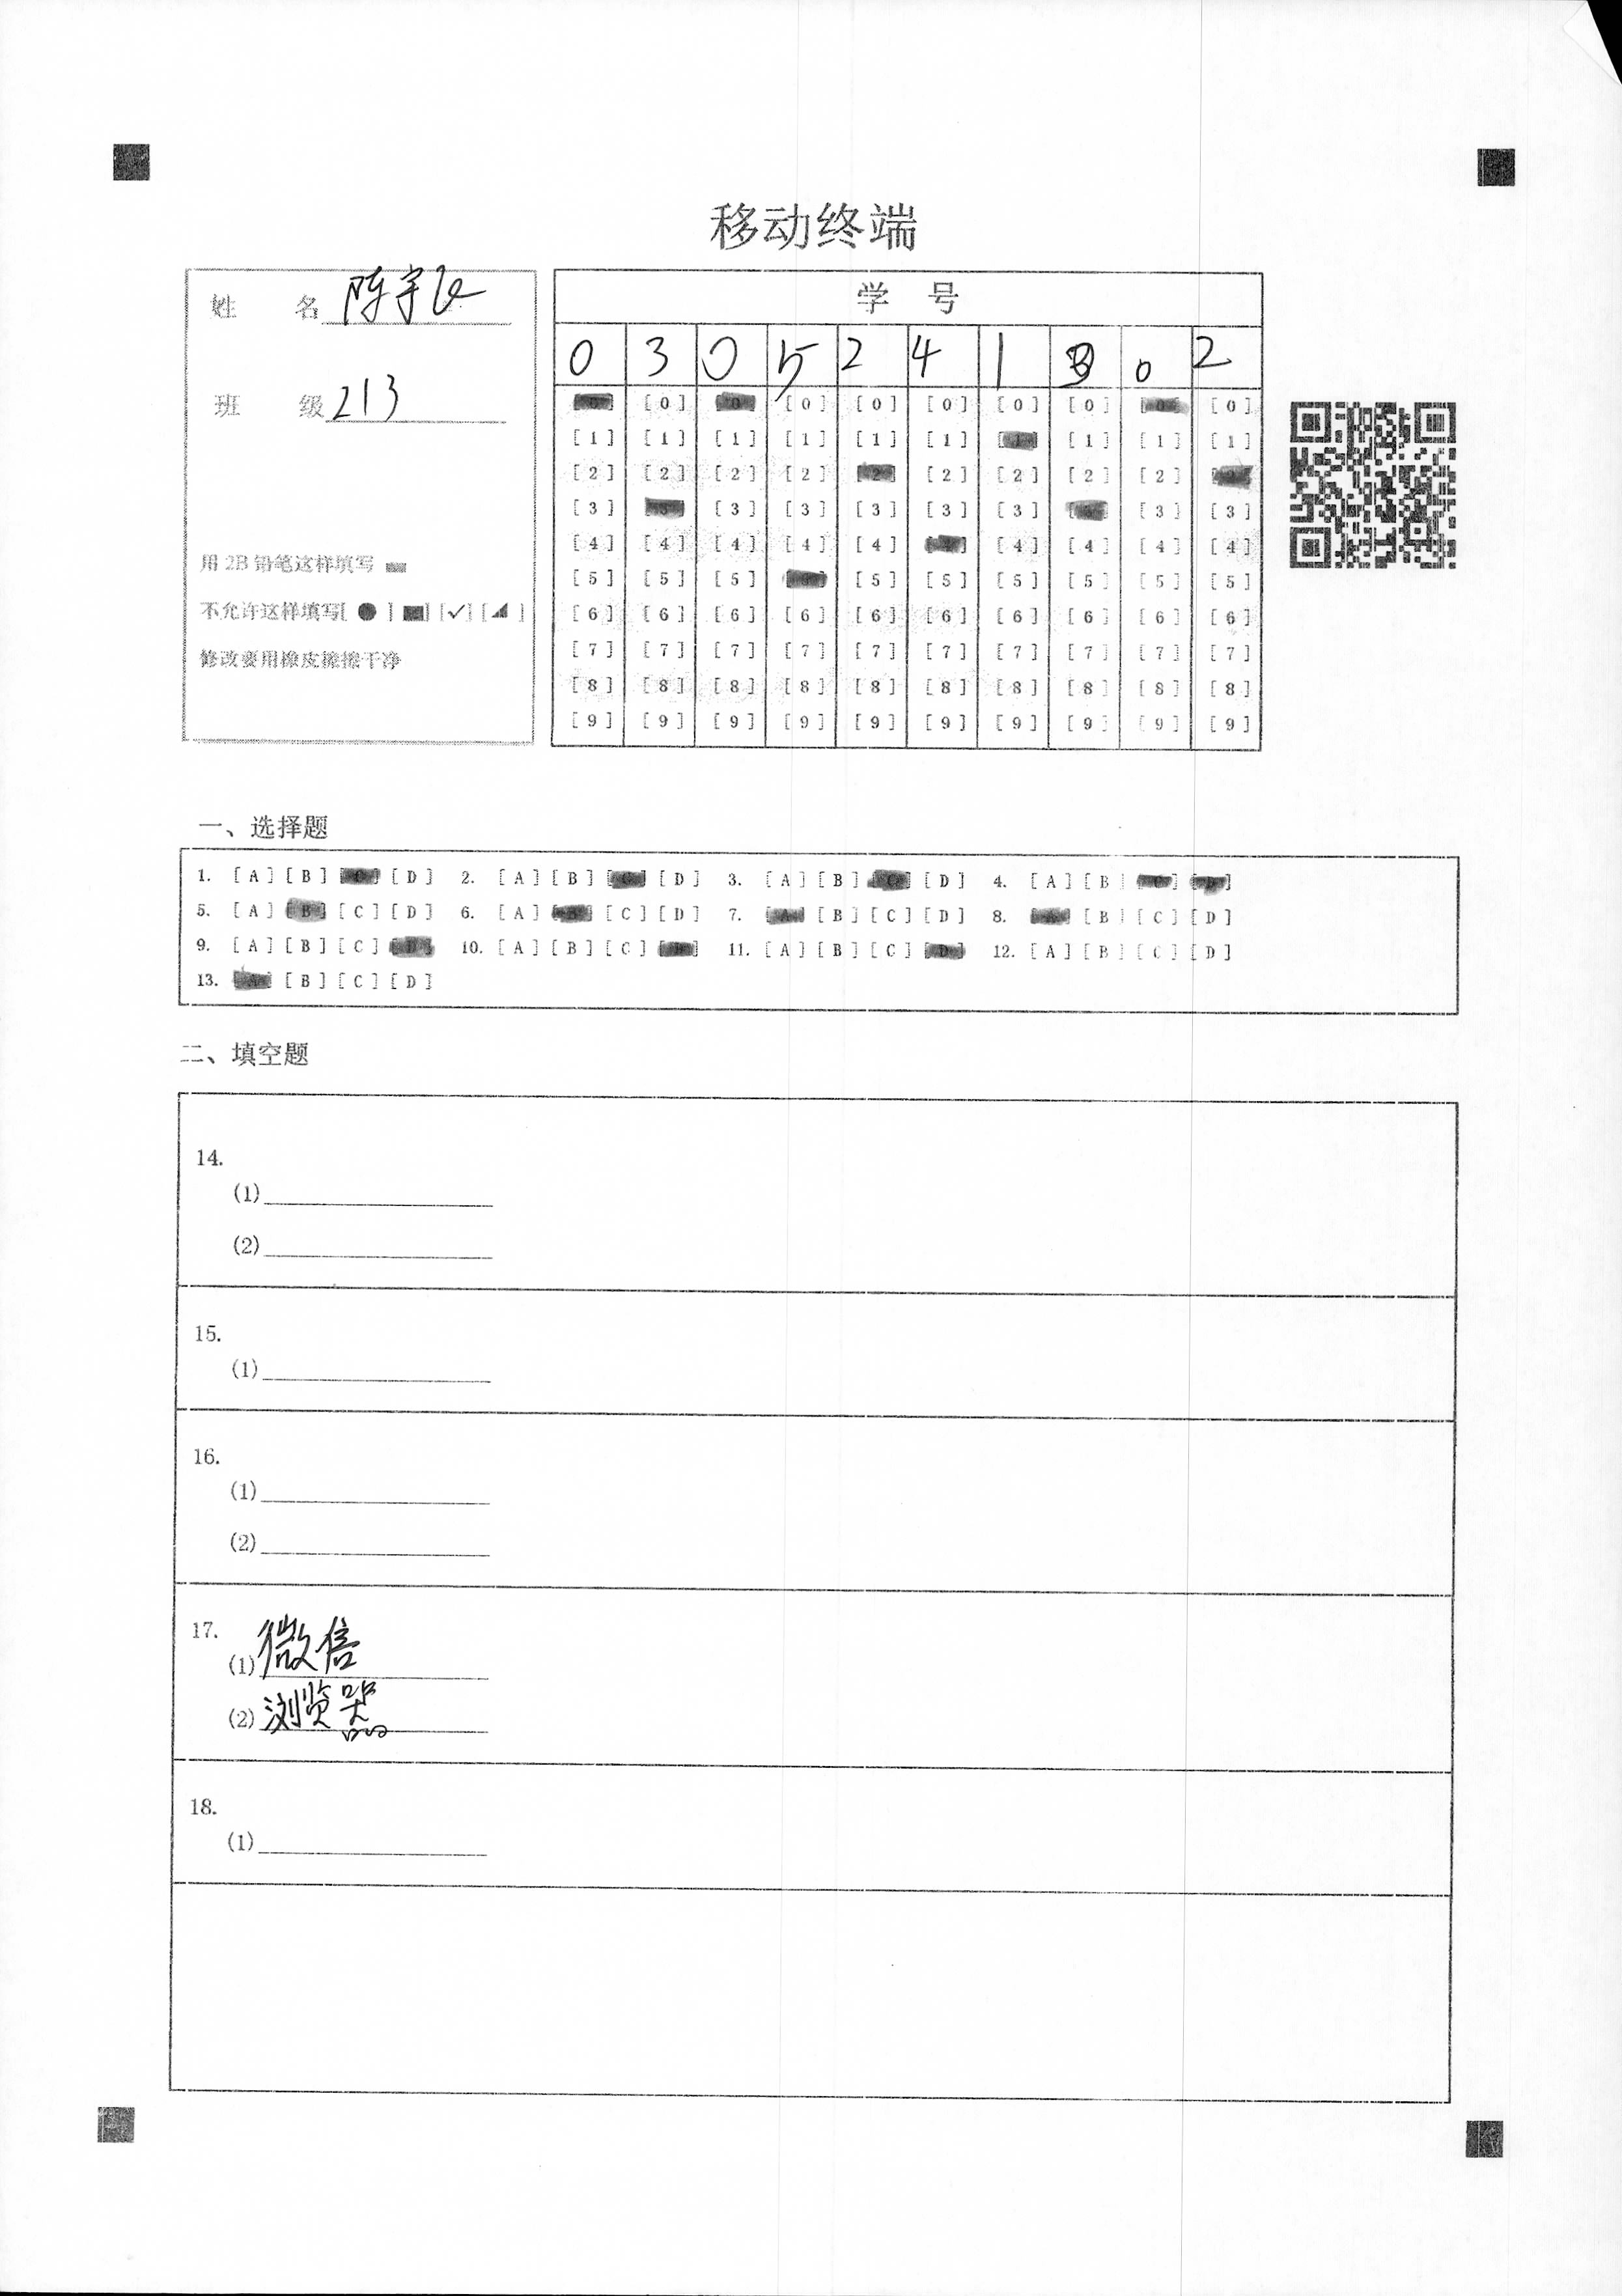 移动终端
姓 名 陈宇飞
班 级 213
用 2B 铅笔这样填写
不允许这样填写[ ● ] [■] [✓] [◢ ]
修改要用橡皮擦擦干净
学 号
0 3 0 5 2 4 1 3 0 2
[0] [0] [0] [0] [0] [0] [0] [0] [0] [0]
[1] [1] [1] [1] [1] [1] [1] [1] [1] [1]
[2] [2] [2] [2] [2] [2] [2] [2] [2] [2]
[3] [3] [3] [3] [3] [3] [3] [3] [3] [3]
[4] [4] [4] [4] [4] [4] [4] [4] [4] [4]
[5] [5] [5] [5] [5] [5] [5] [5] [5] [5]
[6] [6] [6] [6] [6] [6] [6] [6] [6] [6]
[7] [7] [7] [7] [7] [7] [7] [7] [7] [7]
[8] [8] [8] [8] [8] [8] [8] [8] [8] [8]
[9] [9] [9] [9] [9] [9] [9] [9] [9] [9]
一、选择题
1. [A] [B] [C] [D] 2. [A] [B] [C] [D] 3. [A] [B] [C] [D] 4. [A] [B] [C] [D]
5. [A] [B] [C] [D] 6. [A] [B] [C] [D] 7. [A] [B] [C] [D] 8. [A] [B] [C] [D]
9. [A] [B] [C] [D] 10. [A] [B] [C] [D] 11. [A] [B] [C] [D] 12. [A] [B] [C] [D]
13. [A] [B] [C] [D]
二、填空题
14.
(1)
(2)
15.
(1)
16.
(1)
(2)
17.
(1) 微信
(2) 浏览器
18.
(1)